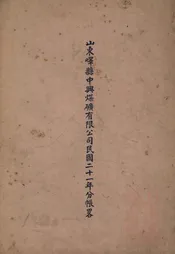 山東嶧縣中興煤礦有限公司民國二十一年分帳畧